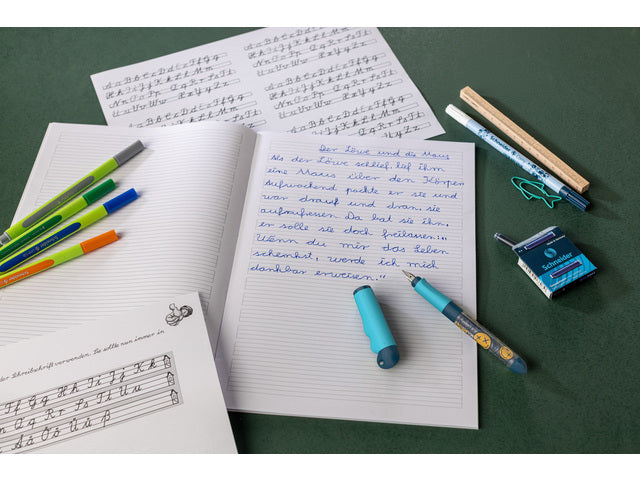 Aa Bb Cc Dd Ee Ff Gg
Hh Ii Jj Kk Ll Mm
Nn Oo Pp Qq Rr Ss Tt
Uu Vv Ww Xx Yy Zz
Aa Bb Cc Dd Ee Ff Gg
Hh Ii Jj Kk Ll Mm
Nn Oo Pp Qq Rr Ss Tt
Uu Vv Ww Xx Yy Zz
Der Löwe und die Maus
Als der Löwe schlief, lief ihm
eine Maus über den Körper.
Aufwachend packte er sie und
war drauf und dran, sie
aufzufressen. Da bat sie ihn,
er solle sie doch freilassen: „
Wenn du mir das Leben
schenkst, werde ich mich
dankbar erweisen."
Schneider
Schneider
der Schreibschrift verwenden. Sie solle nun immer in
Ff Gg Hh Ii Jj Kk
Qq Rr Ss Tt Uu
Ää Öö Üü ß